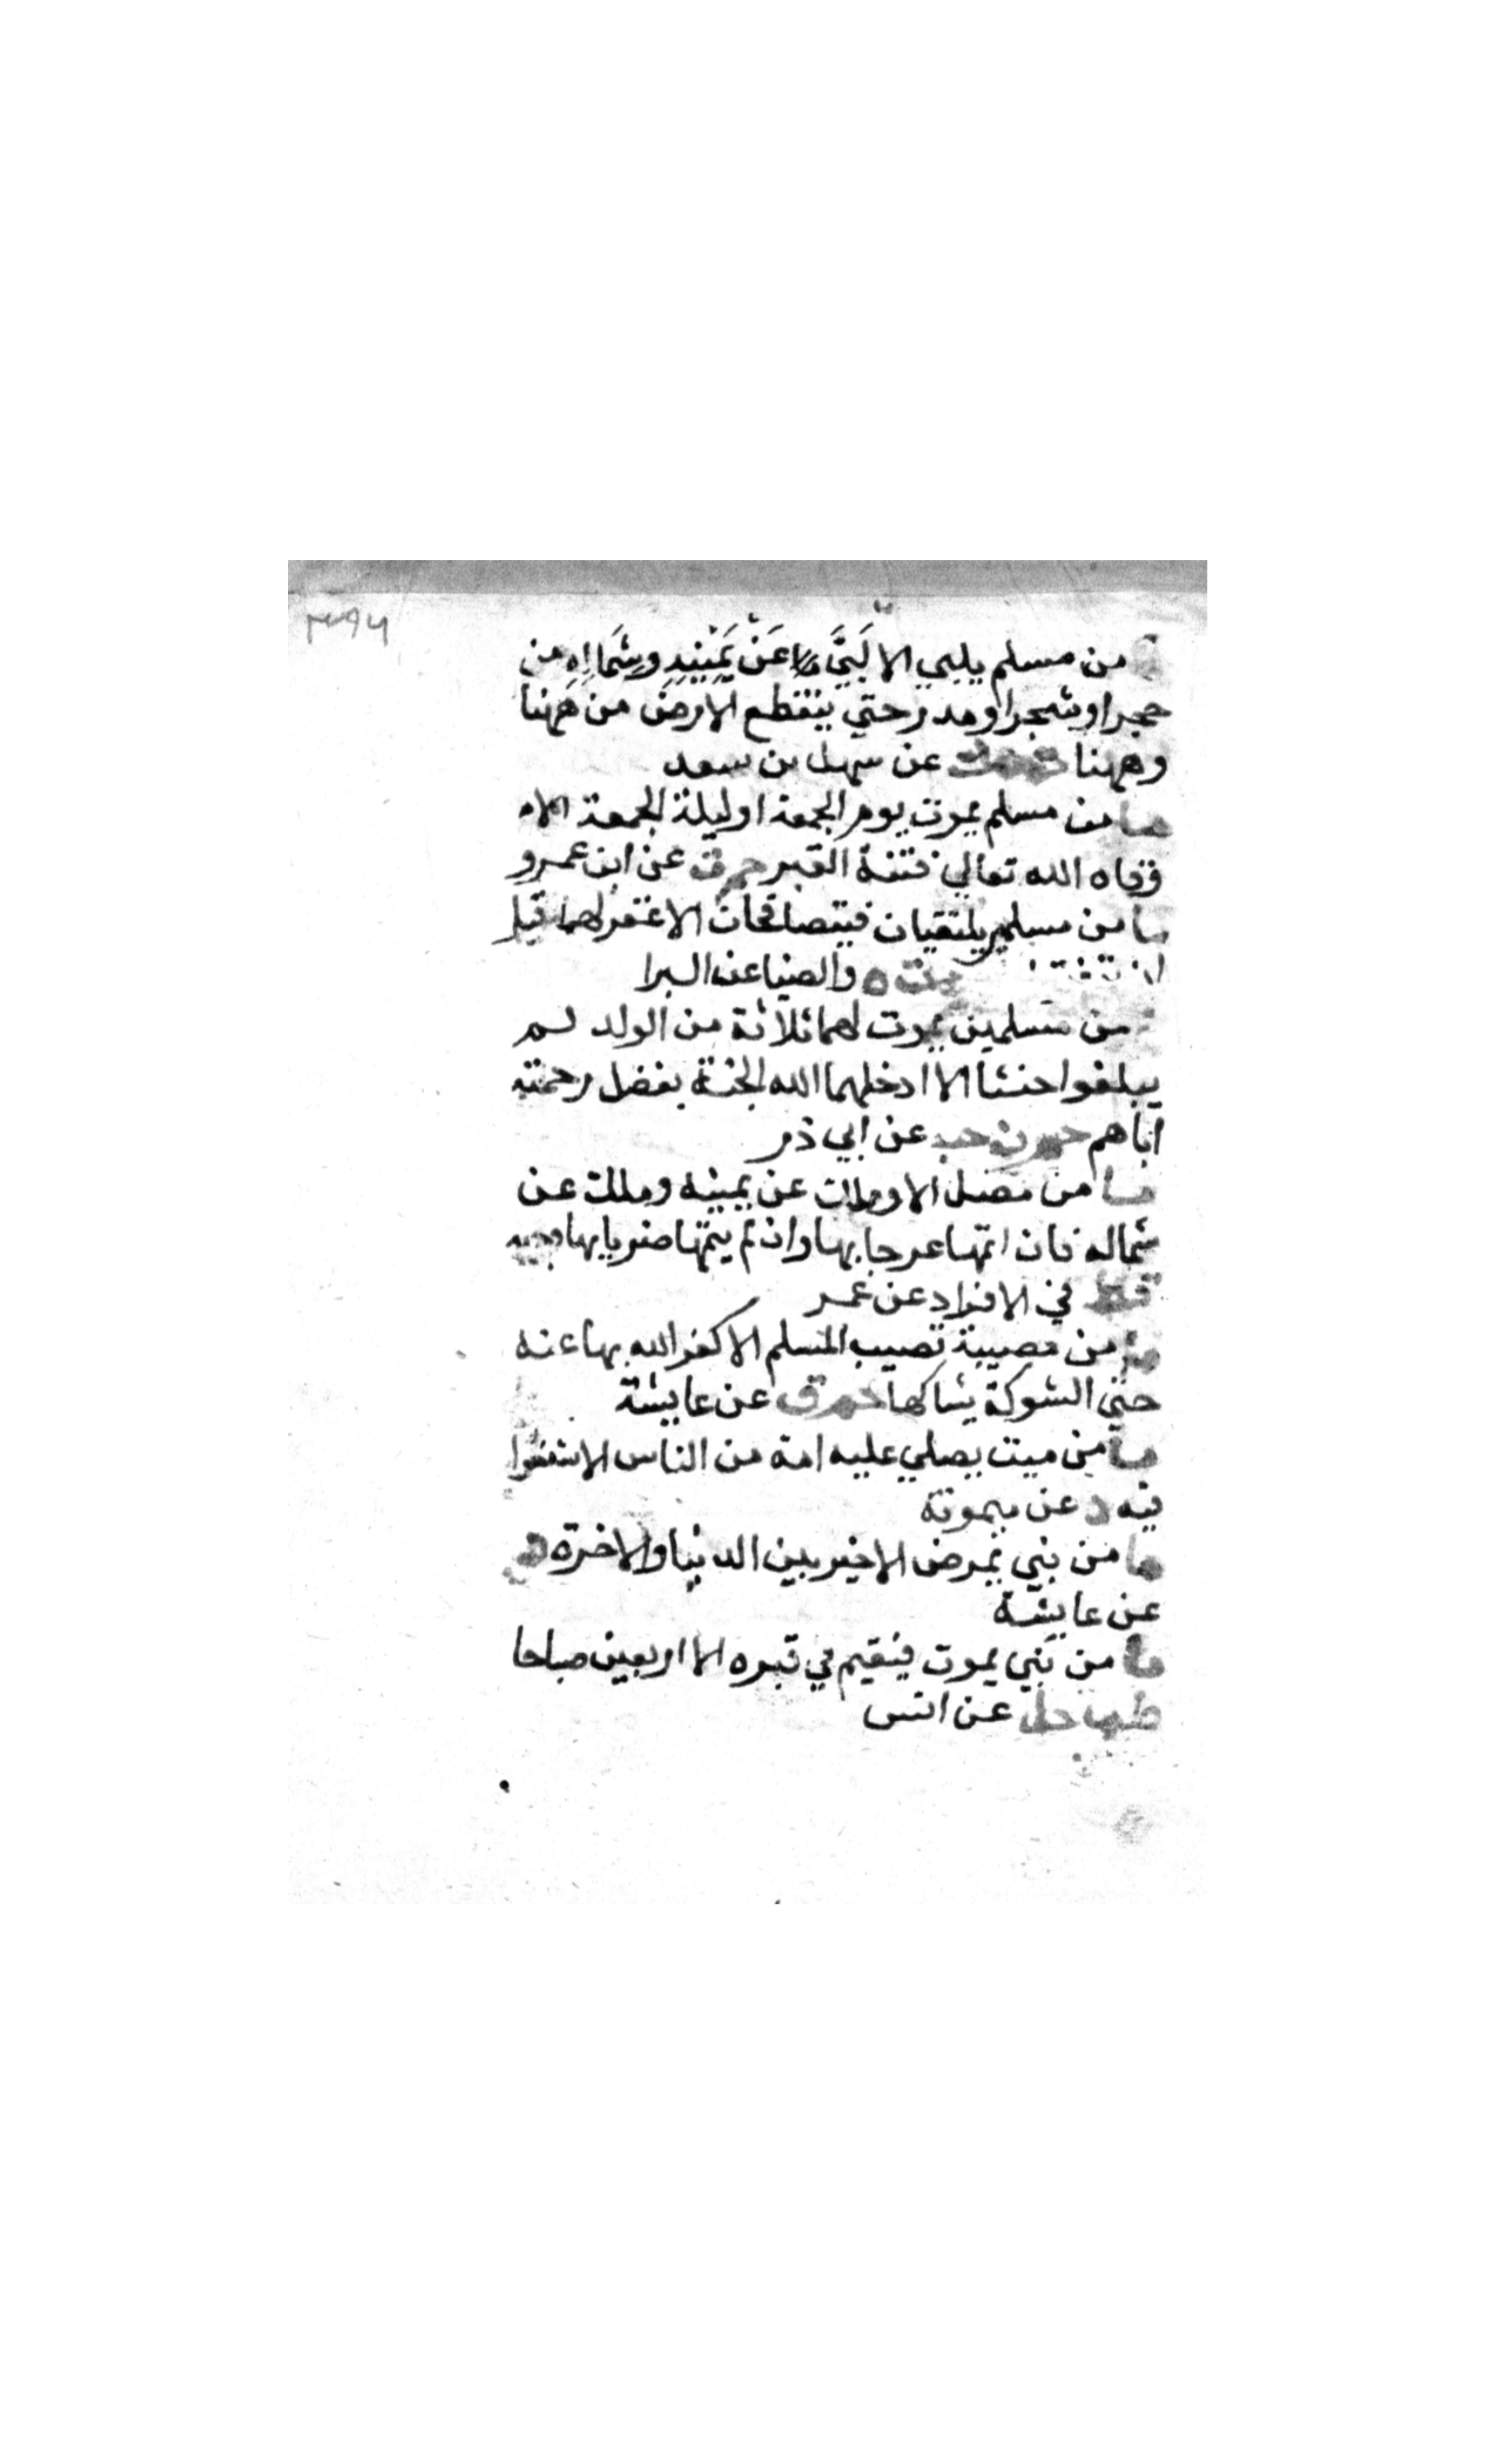 من مسلم يلبي الا لَبَّى ما عَنْ يَمِينِهِ وشِمَالهِ من
حجر او شجر او مدر حتي ينقطع الارض من ههنا
وههنا عن سهل بن سعد
ما من مسلم يموت يوم الجمعة او ليلة الجمعة الا
وقاه الله تعالي فتنة القبر حم ت عن ابن عمرو
ما من مسلمين يلتقيان فيتصافحان الا غفر لهما قبل
ت ه والضيا عن البرا
من مسلمين يموت لهما ثلاثة من الولد لم
يبلغوا حنثا الا ادخلهما الله الجنة بفضل رحمته
اياهم حم ن حب عن ابي ذر
ما من مصل الا وملك عن يمينه وملك عن
شماله فان اتمها عرجا بها وان لم يتمها ضربا بها وجهه
قط في الافراد عن عمر
ما من مصيبة تصيب المسلم الا كفر الله بها عنه
حتى الشوكة يشاكها حم ق عن عايشة
ما من ميت يصلي عليه امة من الناس الا شفعوا
فيه ن عن ميمونة
ما من نبي يمرض الا خير بين الدنيا والاخرة ه
عن عايشة
ما من نبي يموت فيقيم في قبره الا اربعين صباحا
طب حل عن انس